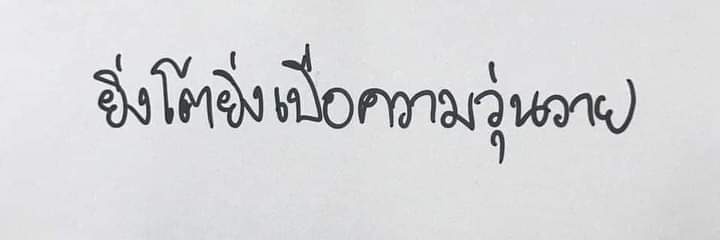 ยิ่งโตยิ่งเบื่อความวุ่นวาย